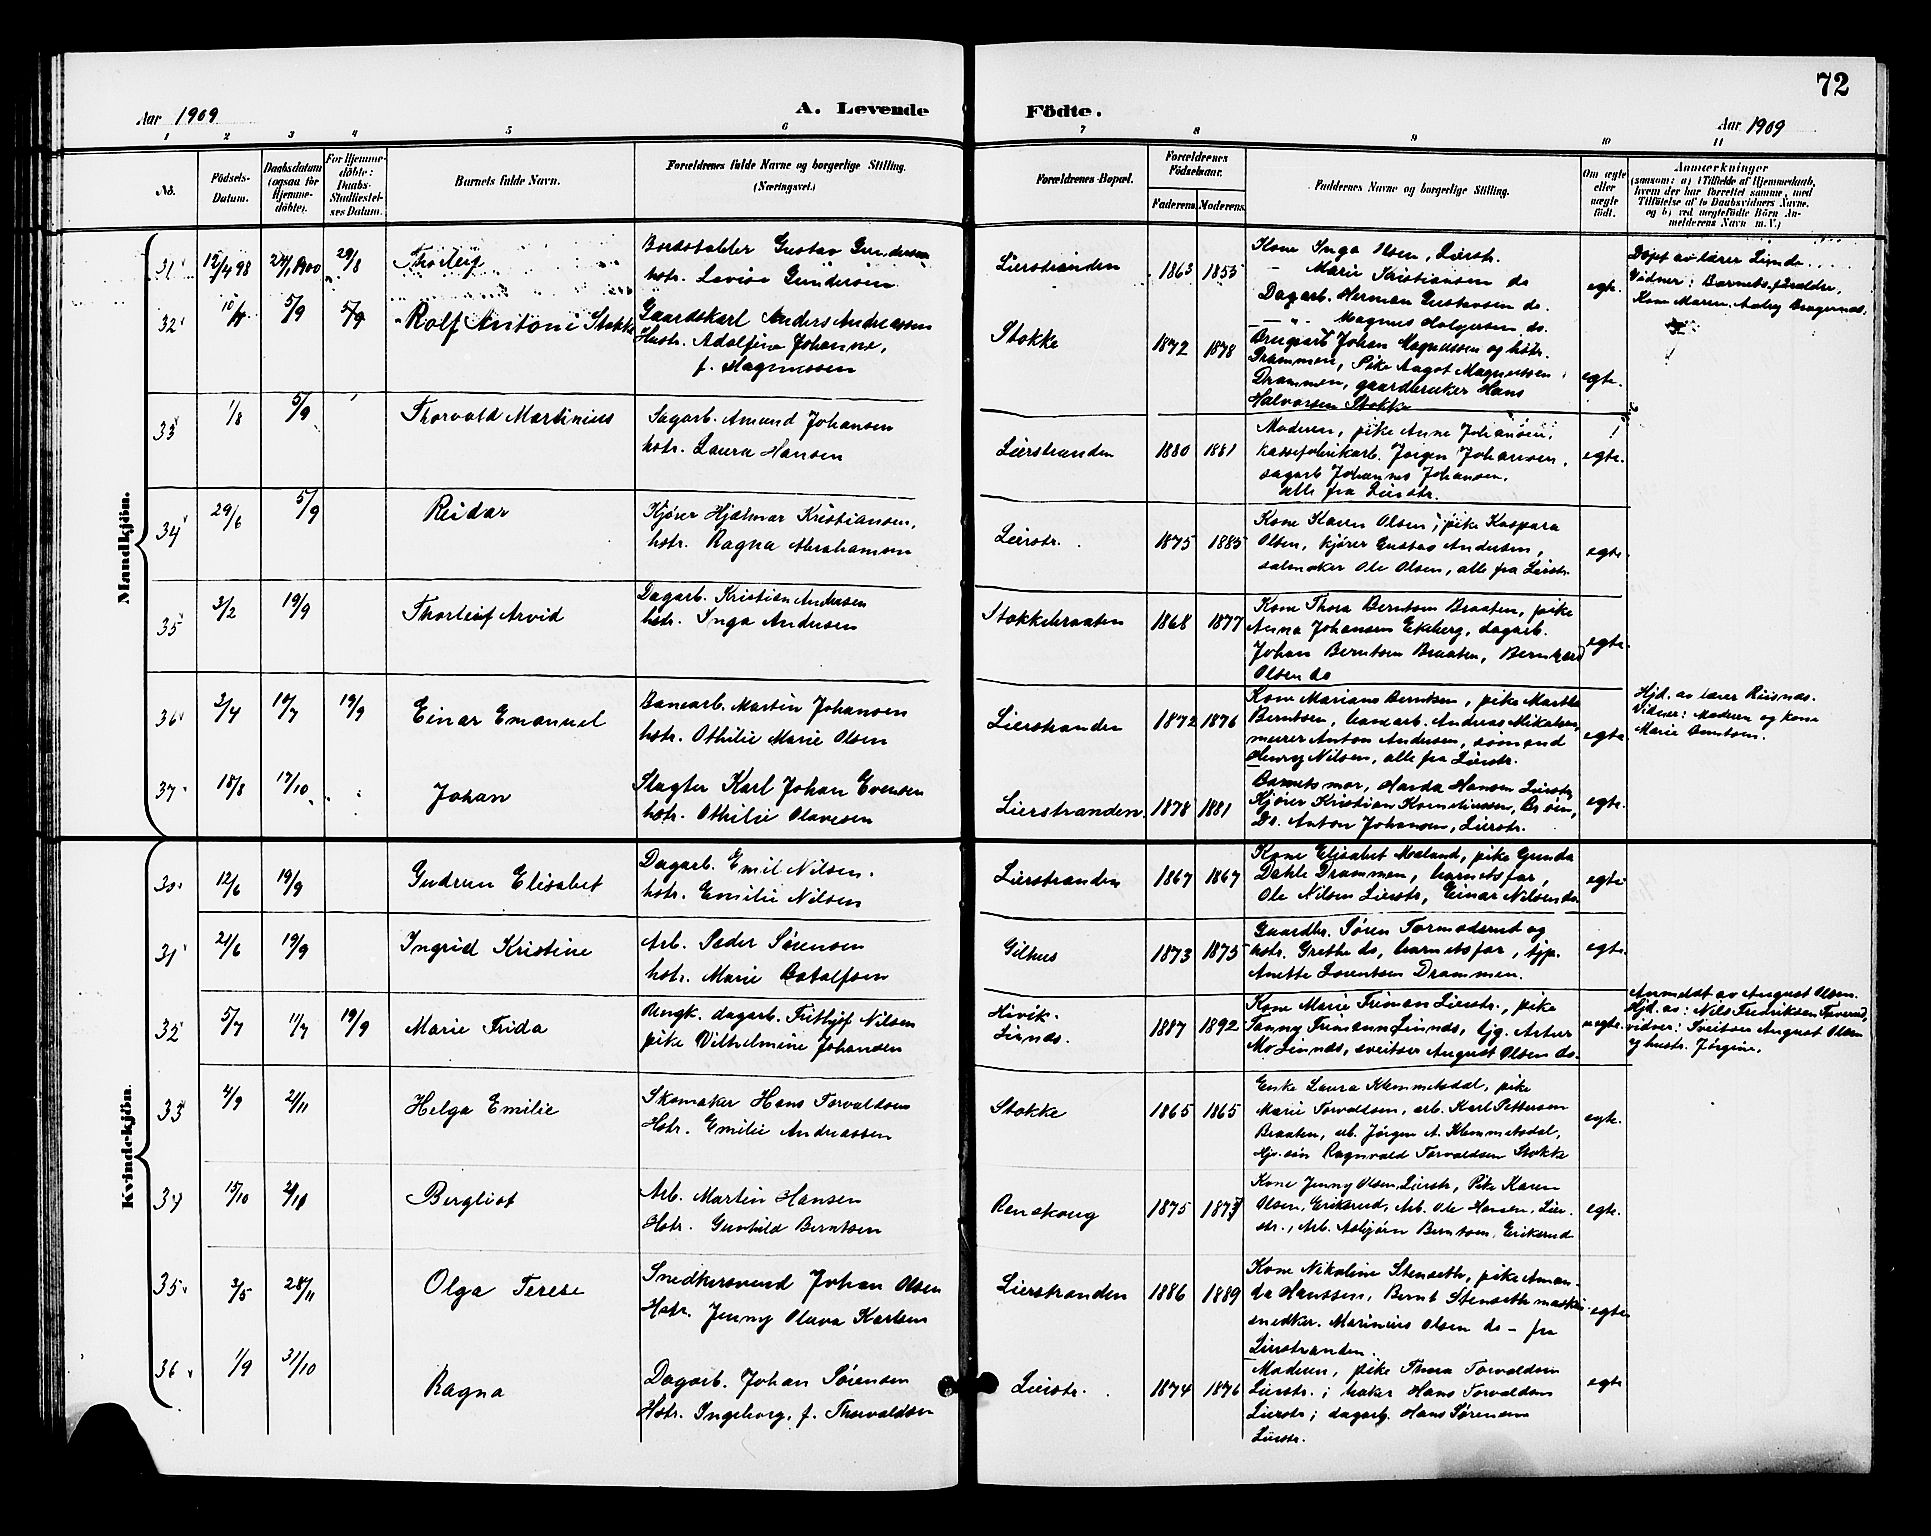 72
Aar 1909
A. Levende
Födte.
Aar 1909
1 2 3 4 5 6 7 8 9 10 11
No.
Födsels-Datum.
Daabsdatum (ogsaa for Hjemme-döbte).
For Hjemme-döbte: Daabs-Stadfæstelses Datum.
Barnets fulde Navn.
Forældrenes fulde Navne og borgerlige Stilling. (Næringsvei.)
Forældrenes Bopæl.
Forældrenes Födselsaar.
Faderens. Moderens.
Faddernes Navne og borgerlige Stilling.
Om ægte eller uægte födt.
Anmærkninger
(saasom: a) i Tilfælde af Hjemmedaab, hvem der har forrettet samme, med Tilföielse af to Daabsvidners Navne. og b) ved uægtefödte Börn Anmelderens Navn m. V.)
Mandkjön.
31 12/4 98 24/1 1900 29/8 Thorleif
Bordstabler Gustav Gundersen
hstr. Lovise Gundersen
Lierstranden 1863 1855
Kone Inga Olsen, Lierstr.
— Marie Kristiansen do
Dagarb. Herman Gustavsen do.
— " — Magnus Holgersen do.
egte.
Døpt av lærer Lunde
Vidner: Barnets forældre,
Kone Maren Aaby Bragernes.
32 5/9 5/9 Rolf Antoni Stokke
Gaardskarl Anders Andreassen
Hustr. Adolfine Johanne,
f. Magnussen
Stokke 1872 1878
Brugsarb. Johan Magnussen og hstr.
Drammen, Pike Aagot Magnussen
Drammen, gaardbruker Hans
Halvorsen Stokke
egte.
33 1/8 5/9 Thorvald Martinius
Sagarb. Amund Johansen
hstr. Laura Hansen
Lierstranden 1880 1881
Moderen, pike Anne Johansen,
kassefabrikarb. Jørgen Johansen,
sagarb Johannes Johansen.
alle fra Lierstr.
egte.
34 29/6 5/9 Reidar
Kjører Hjalmar Kristiansen,
hstr. Ragna Abrahamsen
Lierstr. 1875 1885
Kone Karen Olsen, pike Kaspara
Olsen, kjører Gustav Andersen,
salmaker Ole Olsen, alle fra Lierstr.
egte.
35 3/2 19/9 Thorleif Arvid
Dagarb. Kristian Andersen
hstr. Inga Andersen
Stokkebraaten 1868 1877
Kone Thora Berntsen Braaten, pike
Anna Johansen Ekeberg, dagarb.
Johan Berntsen Braaten, Bernhard
Olsen do
egte.
36 3/4 19/9 Einar Emanuel
Banearb. Martin Johansen
hstr. Othilie Marie Olsen
Lierstranden 1872 1876
Kone Mariane Berntsen, pike Martha
Berntsen, banearb. Andreas Mikalsen,
murer Anton Andersen, sømand
Henry Nilsen, alle fra Lierstr.
egte
Hjd. av lærer Riisnæs.
Vidner: Moderen og kone
Marie Berntsen.
37 18/8 17/10 Johan
Slagter Karl Johan Evensen
hstr. Othilie Olavesen
Lierstranden. 1878 1881
Barnets mor, Harda Hansen Lierstr.
Kjører Kristian Korneliussen, Brøen,
Do. Anton Johansen, Lierstr.
egte.
Kvindekjön.
30 12/6 19/9 Gudrun Elisabet
Dagarb. Emil Nilsen.
hstr. Emilie Nilsen
Lierstranden 1867 1867
Kone Elisabet Mæland, pike Gunda
Dahle Drammen, barnets far,
Ole Nilsen Lierstr, Einar Nilsen do
egte
31 21/6 19/9 Ingrid Kristine
Arb. Peder Sørensen
hstr. Marie Botolfsen
Gilhus 1873 1875
Gaardbr. Søren Tormoderud og
hstr. Grethe do, barnets far, tjp.
Anette Lorentsen Drammen.
egte.
32 5/7 11/7 19/9 Marie Frida
Ungk. dagarb. Frithjof Nilsen
pike Vilhelmine Johansen
Høvik-
Linnæs. 1887 1892
Kone Marie Friman Lierstr., pike
Fanny Frimann Linnæs, tjg. Artur
Mo Linnæs, sveitser August Olsen do.
uegte.
Anmeldt av August Olsen.
Hjd. av: Nils Fredriksen Tuverud,
vidner: Sveitser August Olsen
og hustr. Jørgine.
33 4/9 21/11 Helga Emilie
Skomaker Hans Torvaldsen
Hstr. Emilie Andreassen
Stokke 1865 1865
Enke Laura Klemmetsdal, pike
Marie Torvaldsen, arb. Karl Pettersen
Braaten, arb. Jørgen A. Klemmetsdal,
Hjs. søn Ragnvald Torvaldsen Stokke
egte.
34 15/10 Bergliot
Arb. Martin Hansen
Hstr. Gunhild Berntsen
Renskoug 1875 1873
Kone Jenny Olsen, Lierstr, Pike Karen
Olsen, Eriksrud, Arb. Ole Hansen, Lier-
str., Arb. Asbjørn Berntsen, Eriksrud
egte.
35 3/5 28/11 Olga Terese
Snedkersvend Johan Olsen
Hstr. Jenny Olava Karlsen
Lierstranden 1886 1889
Kone Nikoline Stenseth, pike Aman-
da Hanssen, Bernt Stenseth maskin-
snedker. Marinius Olsen do — fra
Lierstranden.
egte
36 1/9 31/10 Ragna
Dagarb. Johan Sørensen
Hstr. Ingeborg, f. Thorvaldsen
Lierstr. 1874 1876
Moderen, pike Thora Torvaldsen
Lierstr.; baker Hans Torvaldsen
Lierstr; dagarb. Hans Sørensen
Lierstr.
egte